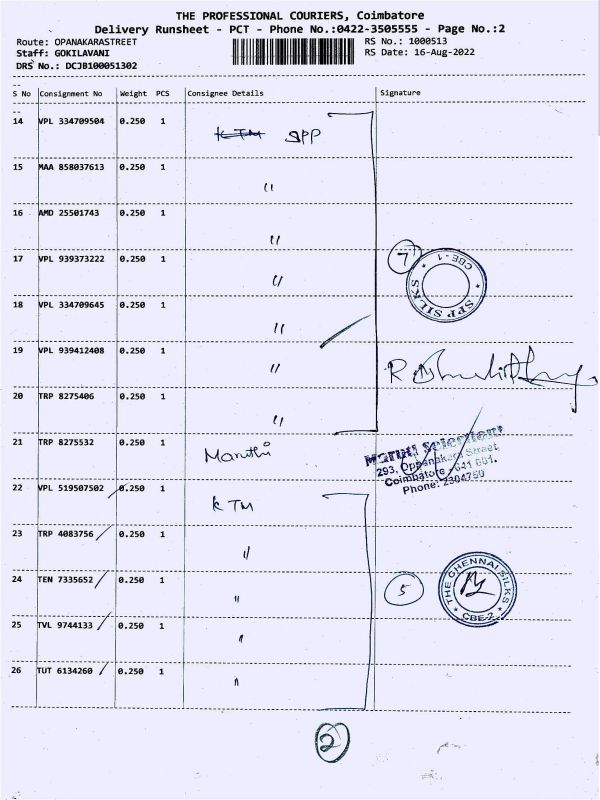 THE PROFESSIONAL COURIERS, Coimbatore
Delivery Runsheet - PCT - Phone No.:0422-3505555 - Page No.:2
Route: OPANAKARASTREET RS No.: 1000513
Staff: GOKILAVANI RS Date: 16-Aug-2022
DRS No.: DCJB100051302
S No Consignment No Weight PCS Consignee Details Signature
14 VPL 334709504 0.250 1 KTM SPP
15 MAA 858037613 0.250 1 "
16 AMD 25501743 0.250 1 "
17 VPL 939373222 0.250 1 " 7
SPP SILKS * CBE-1 *
18 VPL 334709645 0.250 1 "
19 VPL 939412408 0.250 1 "
20 TRP 8275406 0.250 1 "
21 TRP 8275532 0.250 1 Maruthi
Maruti Selections
293, Oppanakara Street,
Coimbatore - 641 001.
Phone: 2304750
22 VPL 519507502 0.250 1 KTM
23 TRP 4083756 0.250 1 "
24 TEN 7335652 0.250 1 " 5
THE CHENNAI SILKS * CBE-2 *
25 TVL 9744133 0.250 1 "
26 TUT 6134260 0.250 1 "
2